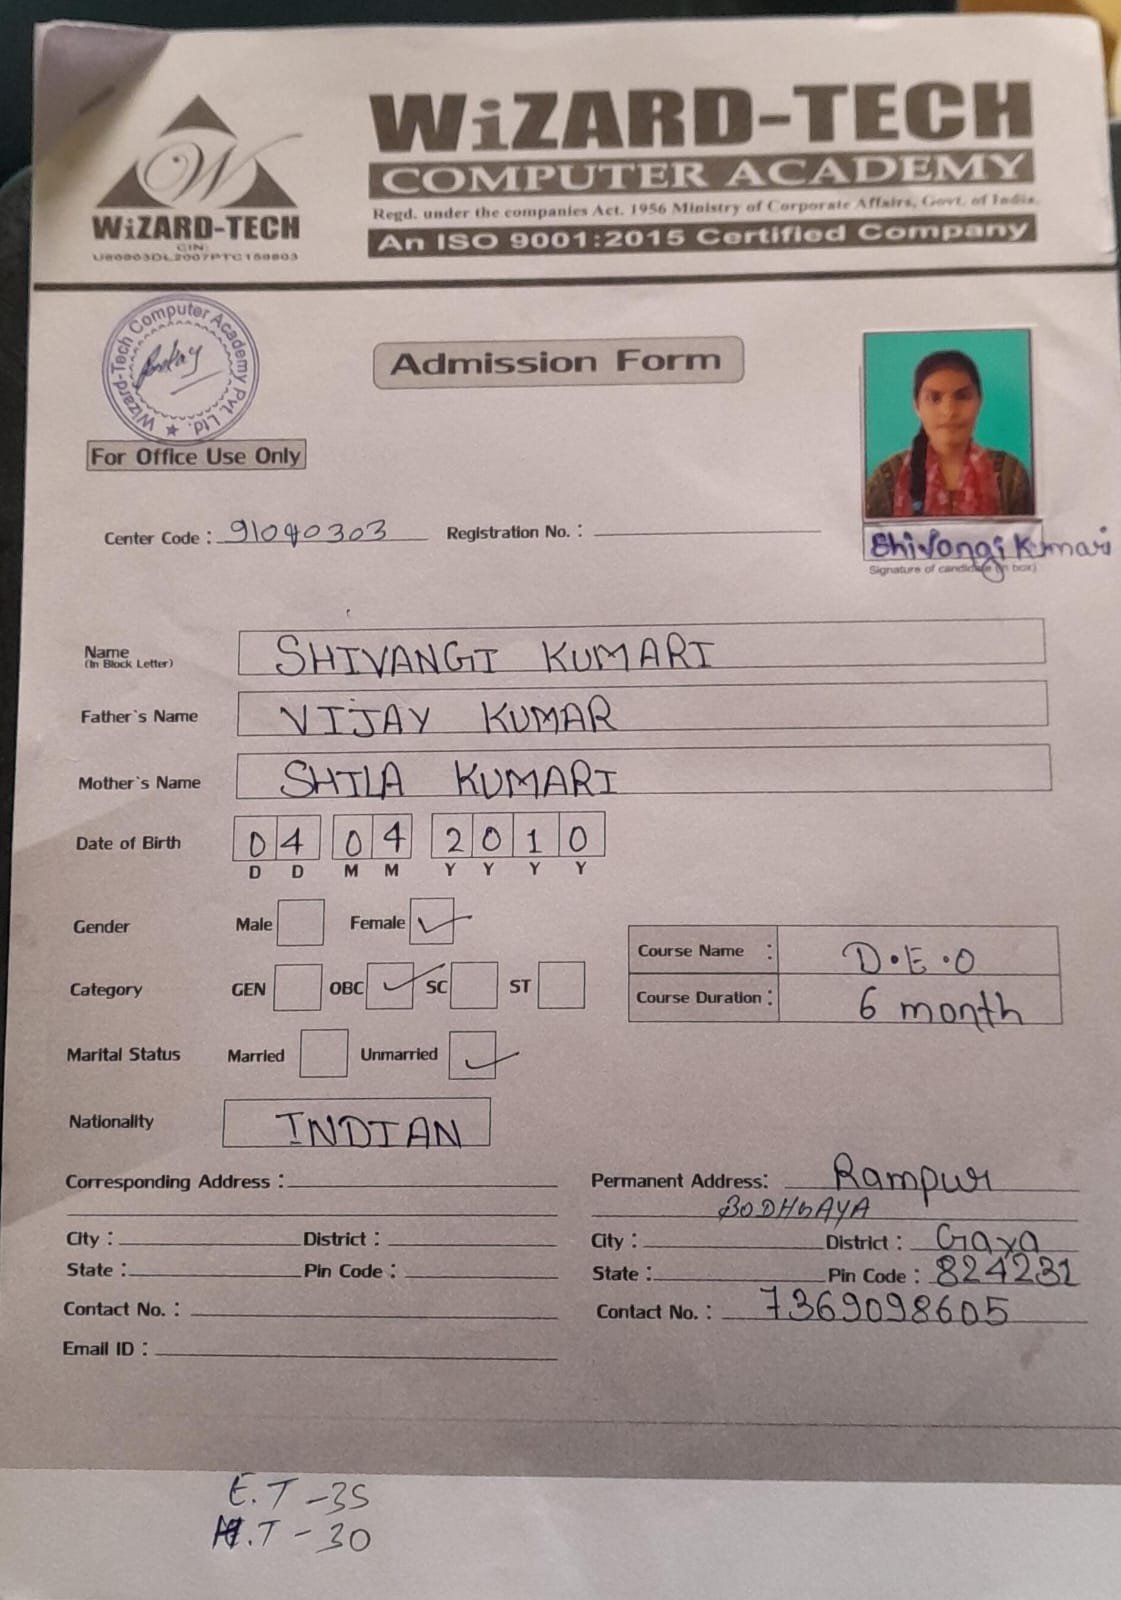 WiZARD-TECH
COMPUTER ACADEMY
Regd. under the companies Act. 1956 Ministry of Corporate Affairs, Govt. of India.
An ISO 9001:2015 Certified Company
W
WiZARD-TECH
CIN:
U80903DL2007PTC159803
Wizard-Tech Computer Academy Pvt. Ltd.
Admission Form
For Office Use Only
Center Code : 91040303 Registration No. :
Shivangi Kumari
Signature of candidate (in box)
Name SHIVANGI KUMARI
(In Block Letter)
Father`s Name VIJAY KUMAR
Mother`s Name SHILA KUMARI
Date of Birth 04 04 2010
D D M M Y Y Y Y
Gender Male Female
Category GEN OBC SC ST
Course Name : D.E.O
Course Duration : 6 month
Marital Status Married Unmarried
Nationality INDIAN
Corresponding Address :
City : District :
State : Pin Code :
Contact No. :
Email ID :
Permanent Address: Rampur
BODHGAYA
City : District : Gaya
State : Pin Code : 824231
Contact No. : 7369098605
E.T - 35
T - 30